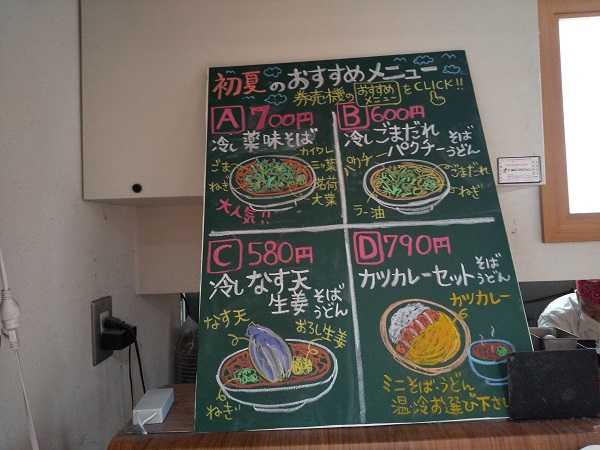 初夏のおすすめメニュー
券売機のおすすめメニューをCLICK!!
A 700円
冷し薬味そば
カイワレ
ごま
三ッ葉
ねぎ
茗荷
大葉
大人気!!
B 600円
冷しごまだれ
パクチー
そば
うどん
パクチー
ごまだれ
ねぎ
ラー油
C 580円
冷しなす天
生姜
そば
うどん
なす天
おろし生姜
ねぎ
D 790円
カツカレーセット
そば
うどん
カツカレー
ミニそば・うどん
温冷お選び下さい